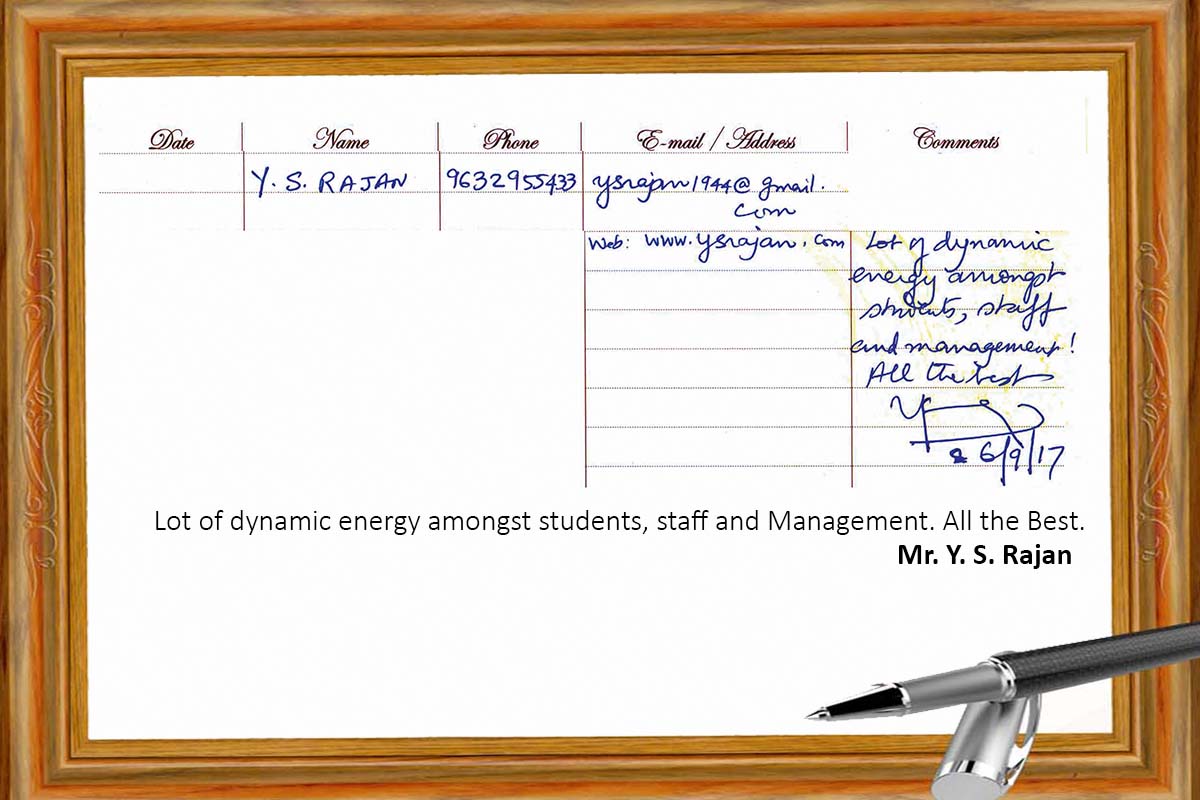 Date Name Phone E-mail / Address Comments
Y. S. RAJAN 9632955433 ysrajan1944@gmail.
com
Web: www.ysrajan.com
Lot of dynamic
energy amongst
students, staff
and management!
All the best
6/9/17
Lot of dynamic energy amongst students, staff and Management. All the Best.
Mr. Y. S. Rajan